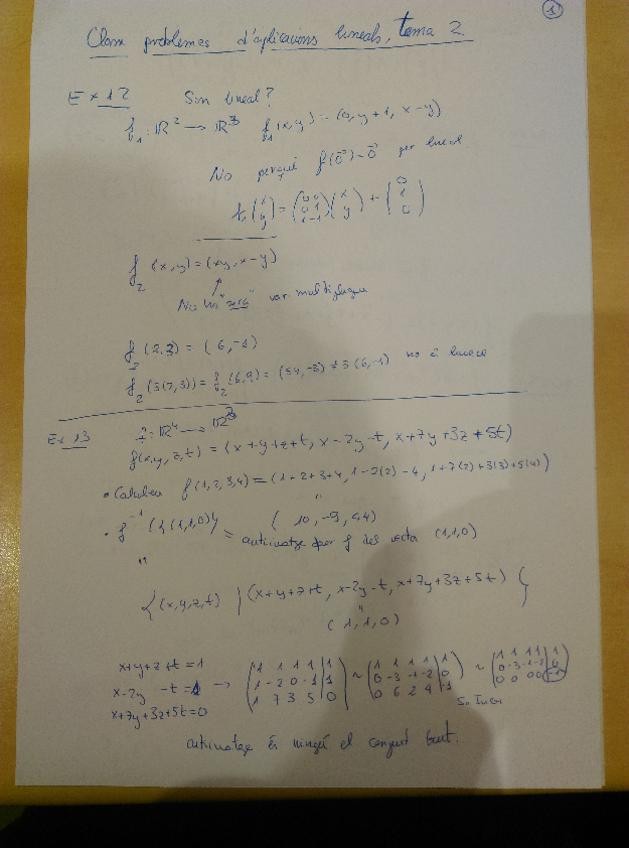 1
Classe problemes d'aplicacions lineals, tema 2.
Ex 12 Son lineal?
f₁: ℝ² → ℝ³ f₁(x,y) = (0, y+1, x-y)
No perquè f(0⃗)=0⃗ per lineal
f₁(x y) = (0 0 / 0 1 / 1 -1)(x y) + (0 1 0)
f₂(x,y) = (xy, x-y)
↑
var multipliquen
f₂(2,3) = (6,-1)
f₂(3(2,3)) = f₂(6,9) = (54,-3) ≠ 3(6,-1) no és lineal
Ex 13 f: ℝ⁴ → ℝ³
f(x,y,z,t) = (x+y+z+t, x-2y-t, x+7y+3z+5t)
• Calculeu f(1,2,3,4) = (1+2+3+4, 1-2(2)-4, 1+7(2)+3(3)+5(4))
"
(10, -9, 44)
• f⁻¹({(1,1,0)}) = antiimatge per f del vector (1,1,0)
"
{(x,y,z,t) | (x+y+z+t, x-2y-t, x+7y+3z+5t) }
"
(1,1,0)
x+y+z+t=1
x-2y -t=1 → (1 1 1 1 | 1 / 1 -2 0 -1 | 1 / 1 7 3 5 | 0) ~ (1 1 1 1 | 1 / 0 -3 -1 -2 | 0 / 0 6 2 4 | -1) ~ (1 1 1 1 | 1 / 0 -3 -1 -2 | 0 / 0 0 0 0 | -1)
x+7y+3z+5t=0
antiimatge és ningú el conjunt buit.